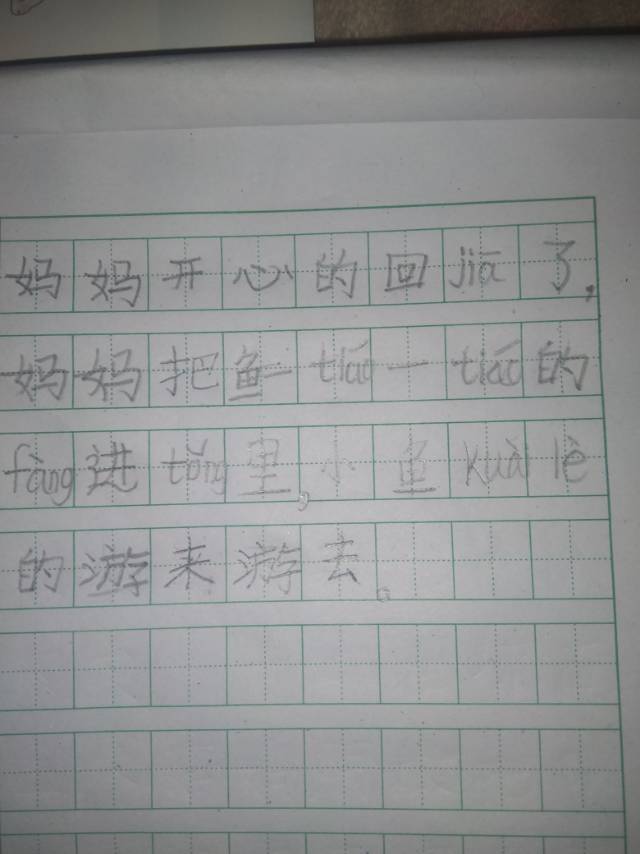 妈妈开心的回jiā了,
妈妈把鱼一tiáo一tiáo的
fàng进tǒng里,小鱼kuài lè
的游来游去。